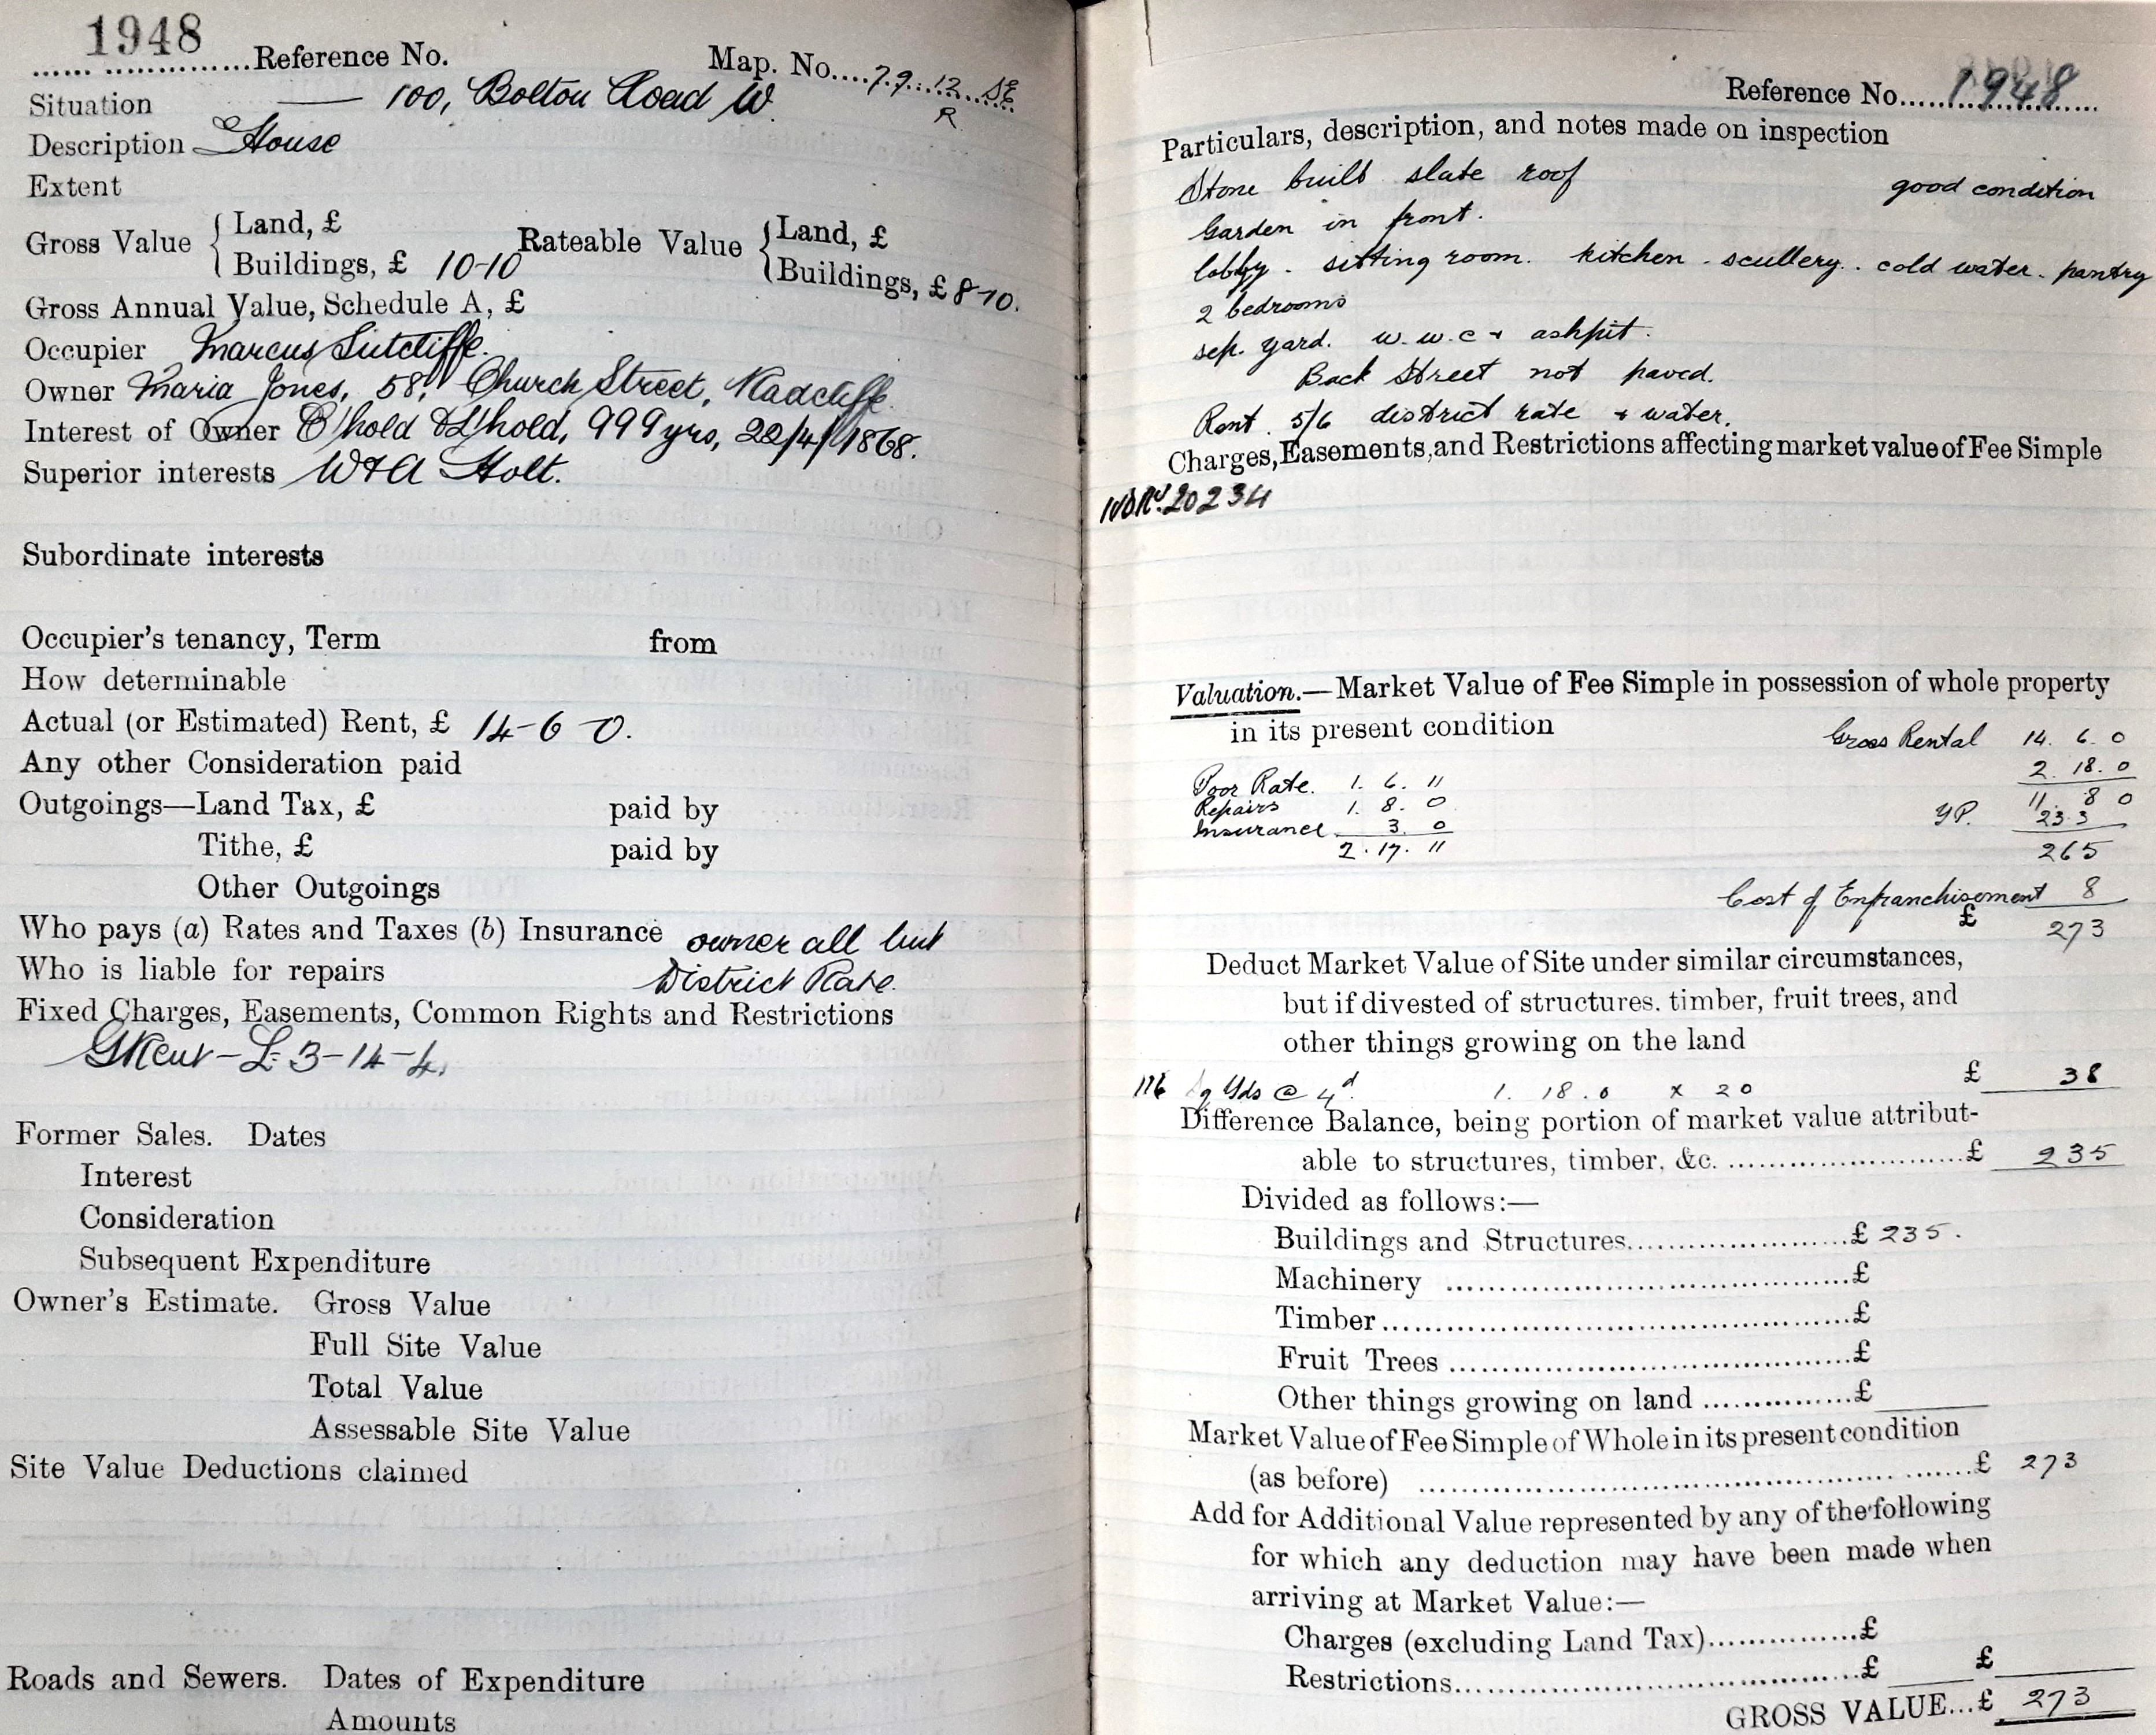 1948
...... ..............Reference No. Map. No....79.12 SE
R
Situation — 100, Bolton Road W.
Description House
Extent
Gross Value { Land, £ Rateable Value { Land, £
Buildings, £ 10-10 Buildings, £ 8-10.
Gross Annual Value, Schedule A, £
Occupier Marcus Sutcliffe.
Owner Maria Jones, 58, Church Street, Radcliffe
Interest of Owner C/hold & L/hold, 999 yrs, 22/4/1868.
Superior interests W & A Holt.
Subordinate interests
Occupier's tenancy, Term from
How determinable
Actual (or Estimated) Rent, £ 14-6-0.
Any other Consideration paid
Outgoings—Land Tax, £ paid by
Tithe, £ paid by
Other Outgoings
Who pays (a) Rates and Taxes (b) Insurance owner all but
Who is liable for repairs District Rate.
Fixed Charges, Easements, Common Rights and Restrictions
GRent - £-3-14-4.
Former Sales. Dates
Interest
Consideration
Subsequent Expenditure
Owner's Estimate. Gross Value
Full Site Value
Total Value
Assessable Site Value
Site Value Deductions claimed
Roads and Sewers. Dates of Expenditure
Amounts
Reference No.....1948
Particulars, description, and notes made on inspection
Stone built slate roof good condition
Garden in front.
lobby. sitting room. kitchen. scullery. cold water. pantry
2 bedrooms
sep. yard. w.w.c + ashpit.
Back Street not paved.
Rent. 5/6 district rate + water.
Charges, Easements, and Restrictions affecting market value of Fee Simple
20234
Valuation.—Market Value of Fee Simple in possession of whole property
in its present condition
Gross Rental 14. 6. 0
2. 18. 0
Poor Rate. 1. 6. 11
Repairs 1. 8. 0 11. 8 0
Insurance 3. 0 YP. 23.3
2. 17. 11 265
Cost of Enfranchisement 8
£ 273
Deduct Market Value of Site under similar circumstances,
but if divested of structures. timber, fruit trees, and
other things growing on the land
116 Sq Yds @ 4d 1. 18. 0 x 20 £ 38
Difference Balance, being portion of market value attribut-
able to structures, timber, &c. ...........................£ 235
Divided as follows:—
Buildings and Structures.......................£ 235.
Machinery .........................................£
Timber................................................£
Fruit Trees .........................................£
Other things growing on land ................£
Market Value of Fee Simple of Whole in its present condition
(as before) ................................................£ 273
Add for Additional Value represented by any of the following
for which any deduction may have been made when
arriving at Market Value:—
Charges (excluding Land Tax)................£
Restrictions.........................................£ £
GROSS VALUE...£ 273